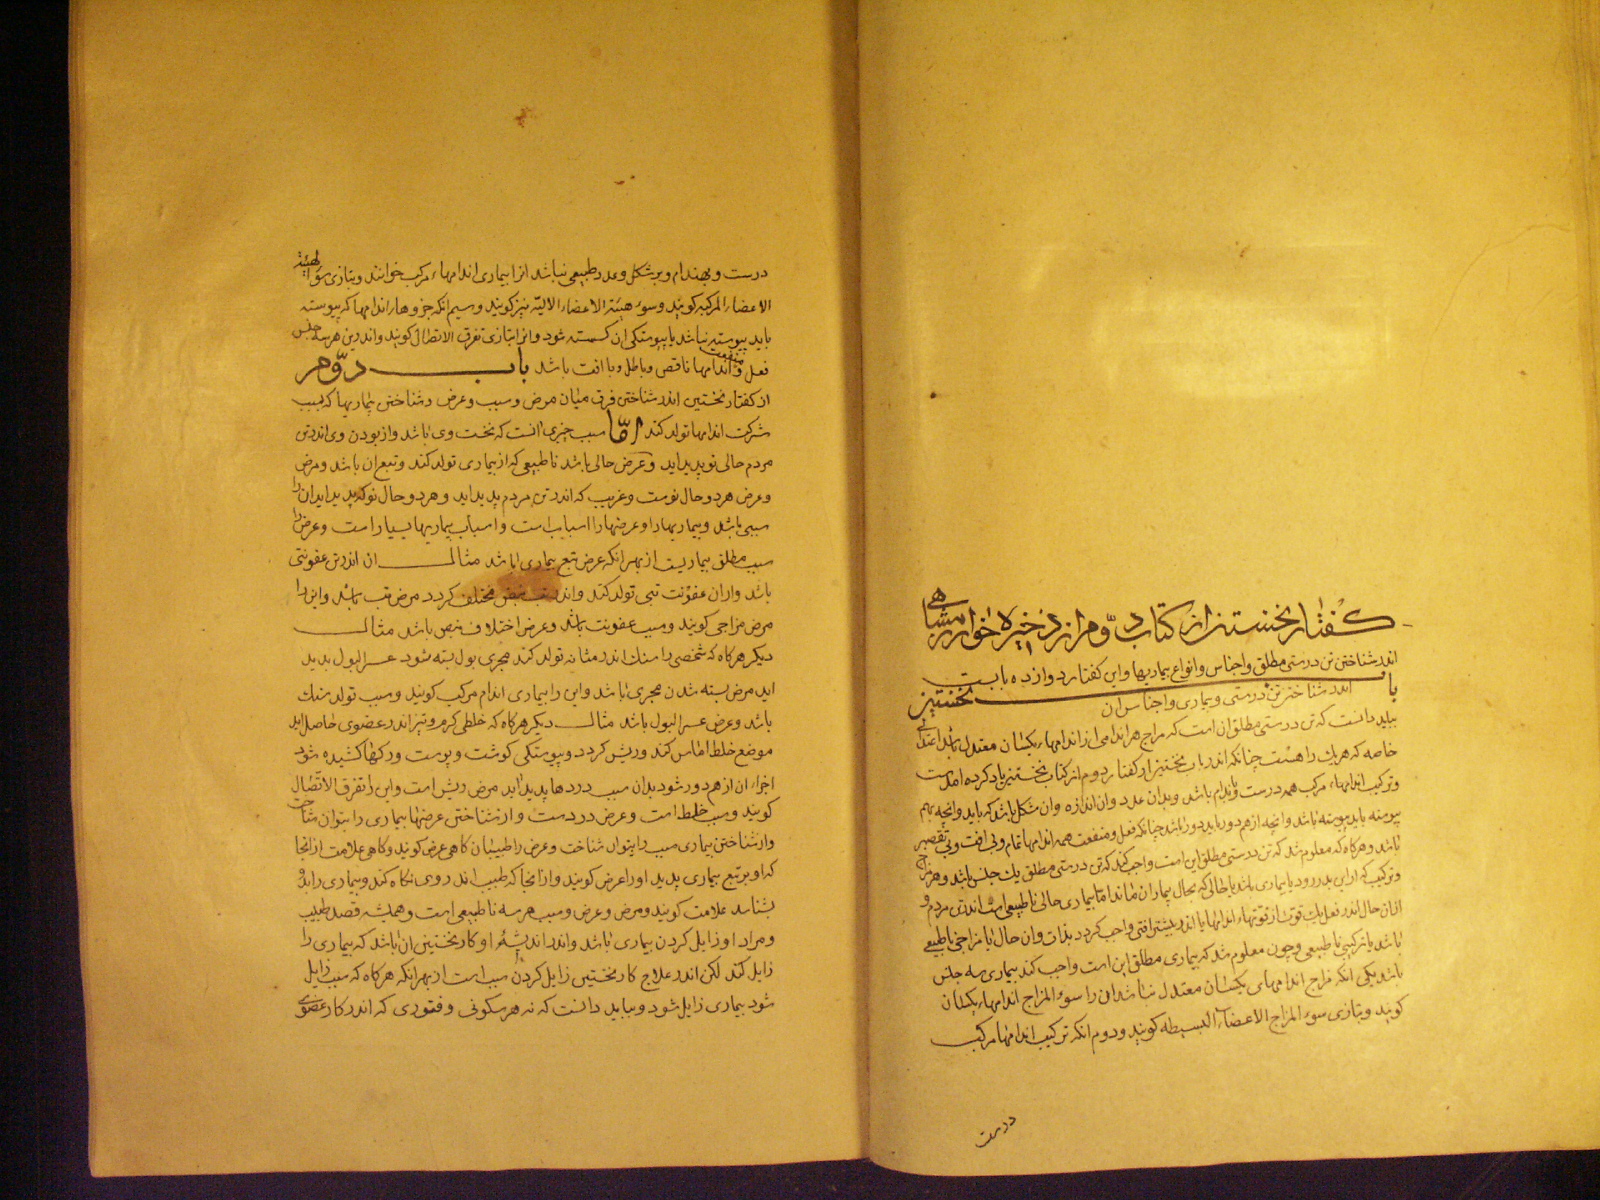 کفتار نخستین از کتاب دوم از ذخیره خوارزمشاهی
اندر شناختن تن درستی مطلق و اجناس و انواع بیماریها و این کفتار دوازده بابست
باب نخستین
اندر شناختن تن درستی و بیماری و اجناس ان
بباید دانست که تن درستی مطلق ان است که مزاج هر اندامی از اندامهاء یکسان معتدل باشد اعتدالی
خاصه که هر یک را هست چنانکه اندر باب نخستین از کفتار دوم از کتاب نخستین یاد کرده امدست
و ترکیب اندامهاء مرکب همه درست و باندام باشد و بدان عدد و ان اندازه و ان شکل باشد که باید و انچه بهم
پیوسته باید پیوسته باشد و انچه از هم دور باید دور باشد چنانکه فعل و منفعت همه اندامها تمام و بی افت و بی تقصیر
باشد و هرکاه که معلوم شد که تن درستی مطلق این است واجب کند که تن درستی مطلق یک جنس باشد و هر مزاج
و ترکیب که از این بدر رود یا بیماری باشد یا حالی که بحال بیماران ماند اما بیماری حالی ناطبیعی است اندر تن مردم و
از ان حال اندر فعل یک قوت از قوتهاء اندامها یا اندر بیشتر افتی واجب کردد بذات و ان حال یا مزاجی ناطبیعی
باشد یا ترکیبی ناطبیعی و چون معلوم شد که بیماری مطلق این است واجب کند بیماری سه جنس
باشد یکی انکه مزاج اندامهای یکسان معتدل نباشد ان را سوء المزاج اندامهاء یکسان
کویند و بتازی سوء المزاج الاعضاء البسیطه کویند و دوم انکه ترکیب اندامها مرکب
درست
درست و بهندام و بر شکل و عدد طبیعی نباشد انرا بیماری اندامهاء مرکب خوانند و بتازی سوء الهیئة
الاعضاء المرکبه کویند و سوء هیئة الاعضاء الالیّه نیز کویند و سیم انکه جزوهاء اندامها که پیوسته
باید پیوسته نباشد یا پیوستکی ان کسسته شود و انرا بتازی تفرق الاتصال کویند و اندرین هر سه جنس
فعل و منفعت اندامها ناقص و باطل و با افت باشد باب دوّم
از کفتار نخستین اندر شناختن فرق میان مرض و سبب و عرض و شناختن بیماریها که بسبب
شرکت اندامها تولد کند امّا سبب چیزی است که نخست وی باشد و از بودن وی اندر تن
مردم حالی نو پدید اید و عرض حالی باشد ناطبیعی که از بیماری تولد کند و تبع ان باشد و مرض
و عرض هر دو حال نوست و غریب که اندر تن مردم پدید اید و هر دو حال نو که پدید اید ان را
سببی باشد و بیماریها را و عرضها را اسباب است و اسباب بیماریها بسیار است و عرض را
سبب مطلق بیماریست از بهر انکه عرض تبع بیماری باشد مثال ان اندر تن عفونتی
باشد و از ان عفونت تبی تولد کند و اندر تب نبض مختلف کردد مرض تب باشد و این را
مرض مزاجی کویند و سبب عفونت باشد و عرض اختلاف نبض باشد مثال
دیکر هرکاه که شخصی را سنک اندر مثانه تولد کند مجری بول بسته شود عسر البول پدید
اید مرض بسته شدن مجری باشد و این را بیماری اندام مرکب کویند و سبب تولد سنک
باشد و عرض عسر البول باشد مثال دیکر هرکاه که خلطی کرم و تیز اندر عضوی حاصل اید
موضع خلط اماس کند و ریش کردد و پیوستکی کوشت و پوست و رکها کشیده شود
اجزاء ان از هم دور شود بدان سبب دردها پدید اید مرض ریش است و این را تفرق الاتّصال
کویند و سبب خلط است و عرض درد ست و از شناختن عرضها بیماری را بتوان شناخت
و از شناختن بیماری سبب را بتوان شناخت و عرض را طبیبان کاهی عرض کویند و کاهی علامت از انجا
که او بر تبع بیماری پدید اید او را عرض کویند و از انجا که طبیب اندر وی نکاه کند و بیماری را بدو
بشناسد علامت کویند و مرض و عرض و سبب هر سه ناطبیعی است و همیشه قصد طبیب
و مراد او زایل کردن بیماری باشد و اندر اندیشهٔ او کار نخستین ان باشد که بیماری را
زایل کند لکن اندر علاج کار نخستین زایل کردن سبب است از بهر انکه هرکاه که سبب زایل
شود بیماری زایل شود و بباید دانست که نه هر سکونی و فتوری که اندر کار عضوی